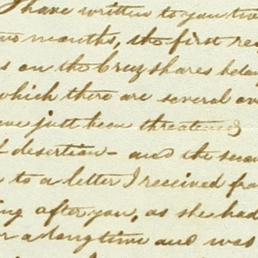 I have written to you tw
wo months, the first re
s on the Cruz shares belon
which there are several ow
ve just been threatened
f desertion - and the secon
n to a letter I received fro
ng after you, as she had
r a long time and was